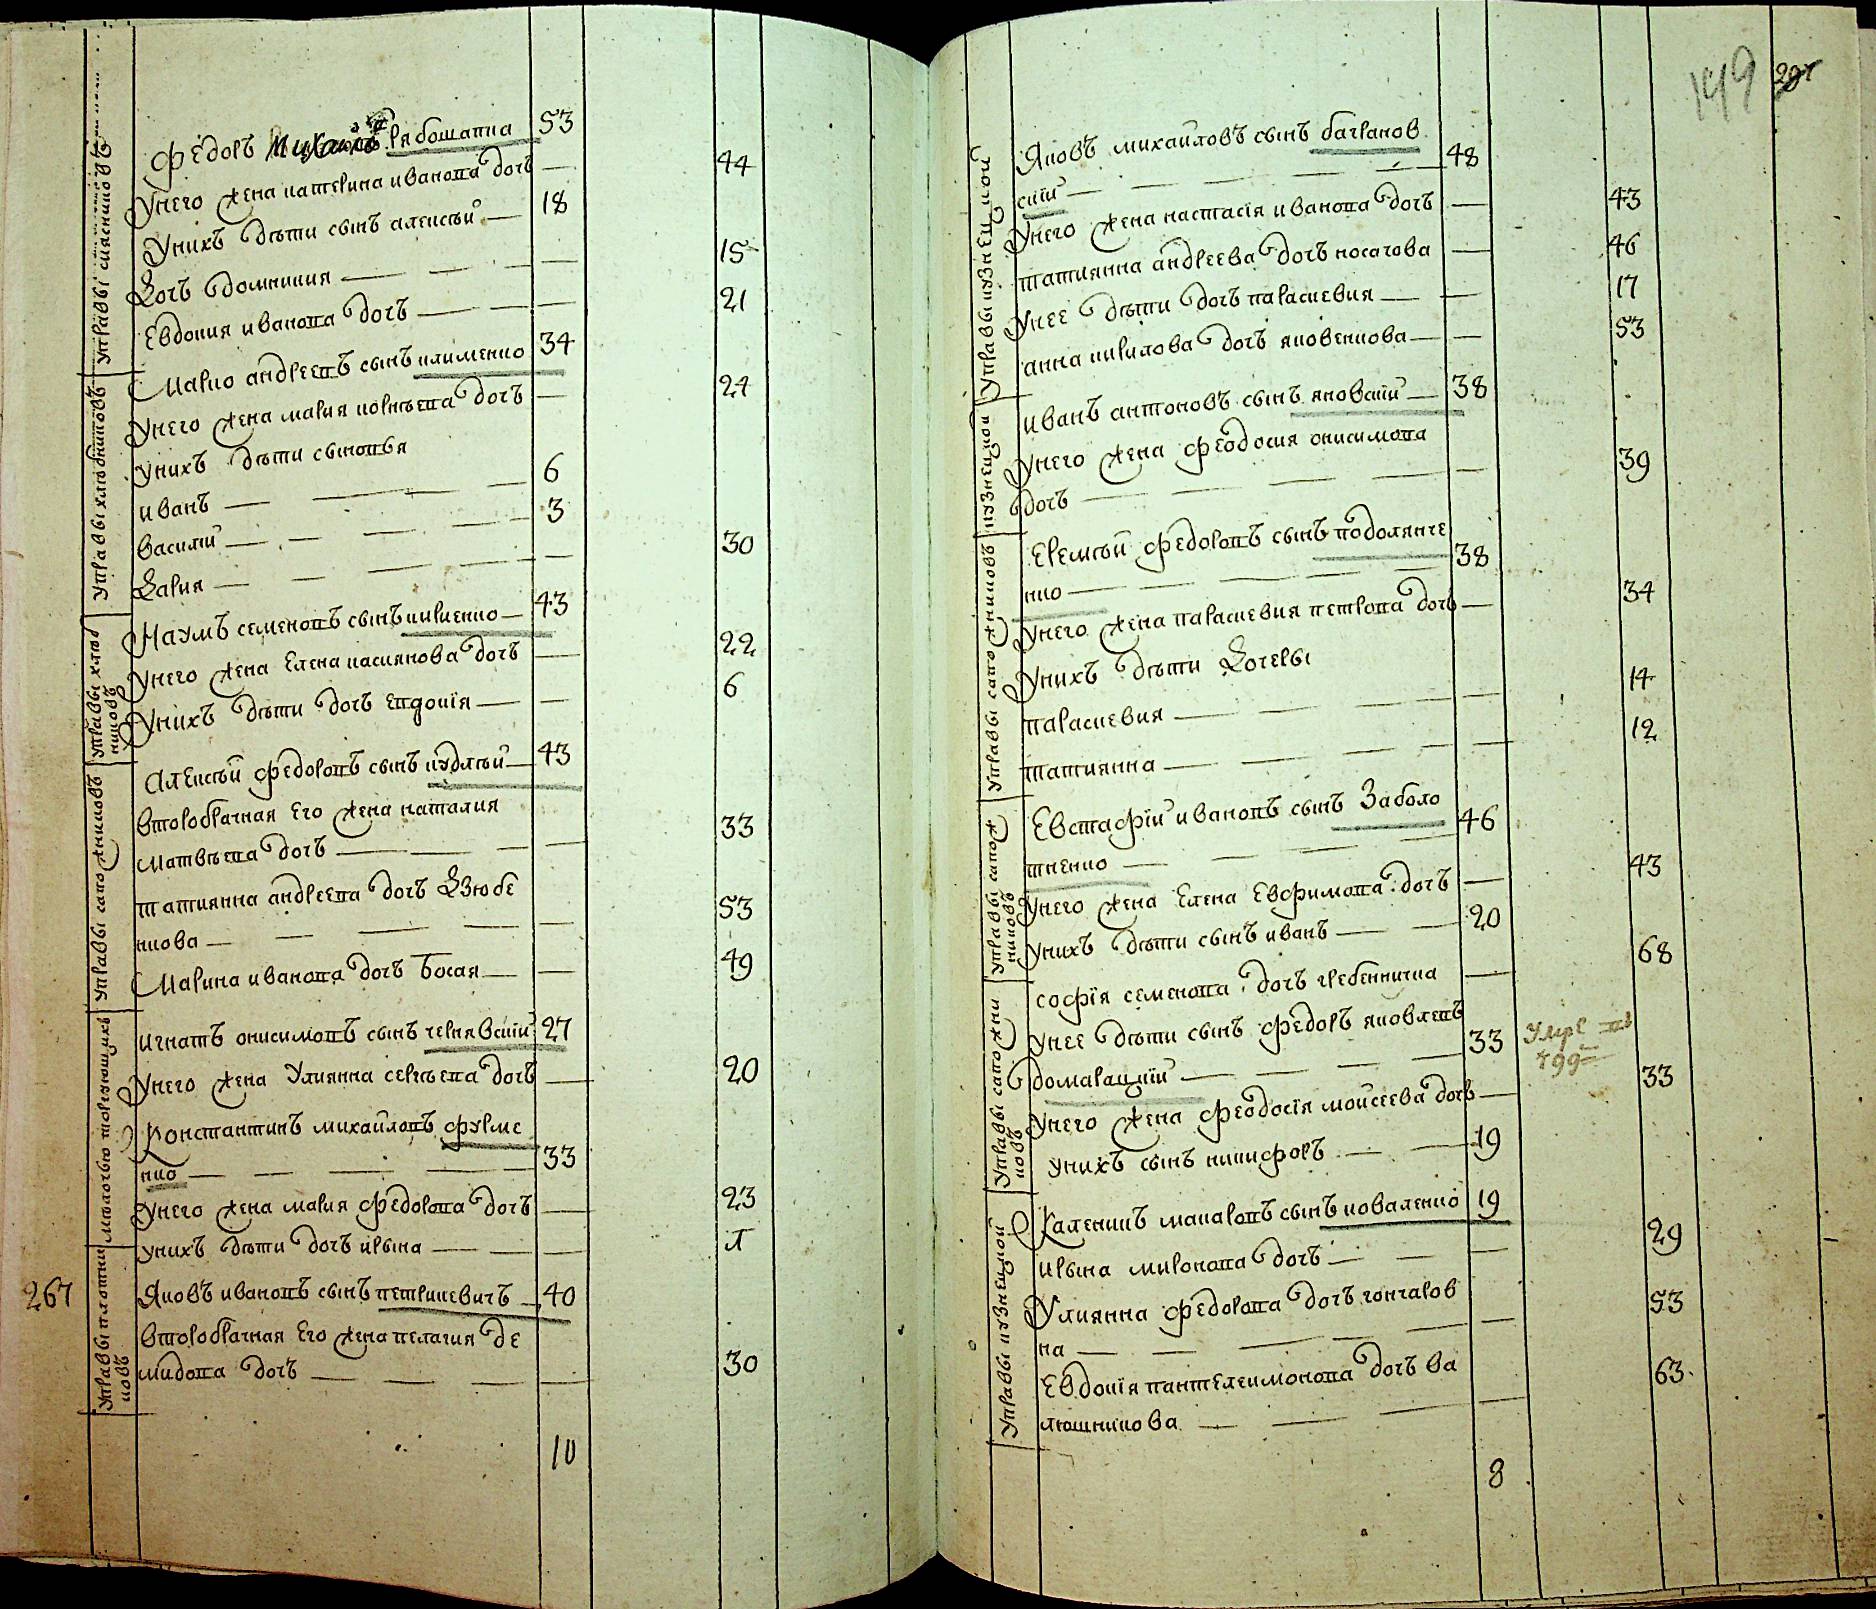 Федоръ рябошапка 53
Унего жена катерина иванова дочь — 44
Унихъ дѣти сынъ алексѣй — 18
Дочь домникия — 15
Евдокия иванова дочь — 21
Управы хлѣбниковъ
Марко андреевъ сынъ клименко 34
Унего жена мария корнѣева дочь — 24
Унихъ дѣти сыновья
иванъ — 6
василий — 3
Дария — 30
Управы хлѣб
никовъ
Наумъ семеновъ сынъ кириенко — 43
Унего жена Елена касиянова дочь — 22
Унихъ дѣти дочь евдокія — 6
Управы сапожниковъ
Алексѣй федоровъ сынъ кудлѣй — 43
второбрачная Его жена наталия
матвѣева дочь — 33
татиянна андреева дочь Дзюбе
нкова — 53
Марина иванова дочь Босая — 49
мѣлочью торгующихъ
игнатъ онисимовъ сынъ чернявский 27
Унего жена Улиянна сергѣева дочь — 20
Константинъ михайловъ фурме
нко — 33
Унего жена мария федорова дочь — 23
унихъ дѣти дочь ирина — Л
267
Управы плотни
ковъ
Яковъ ивановъ сынъ петрикевичъ — 40
второбрачная Его жена пелагия де
мидова дочь — 30
10
149
Управы кузнецкой
Яковъ михайловъ сынъ багранов
ский — 48
Унего жена настасія иванова дочь — 43
татиянна андреева дочь носачова — 46
Унее дѣти дочь параскевия — 17
анна кирилова дочь яковенкова — 53
кузнецкой
иванъ антоновъ сынъ яновский — 38
Унего жена феодосия онисимова
дочь — 39
Управы сапожниковъ
Еремѣй федоровъ сынъ подолянче
нко — 38
Унего жена параскевия петрова дочь — 34
Унихъ дѣти Дочеры
параскевия — 14
татиянна — 12
Управы сапож
никовъ
Евстафій ивановъ сынъ Заболо
тненко — 46
Унего жена Елена Евфимова дочь — 43
Унихъ дѣти сынъ иванъ — 20
софія семенова дочь гребенникча — 68
Управы сапожни
ковъ
Унее дѣти сынъ федоръ яковлевъ
домарацкій — 33
Унего жена феодосія моисеева дочь — 33
унихъ сынъ никифоръ — 19
Управы кузнецкой
Каленикъ макаровъ сынъ коваленко 19
ирина миронова дочь — 29
Улиянна федорова дочь гончаров
на — 53
Евдокія пантелеимонова дочь ва
люшникова — 63
8